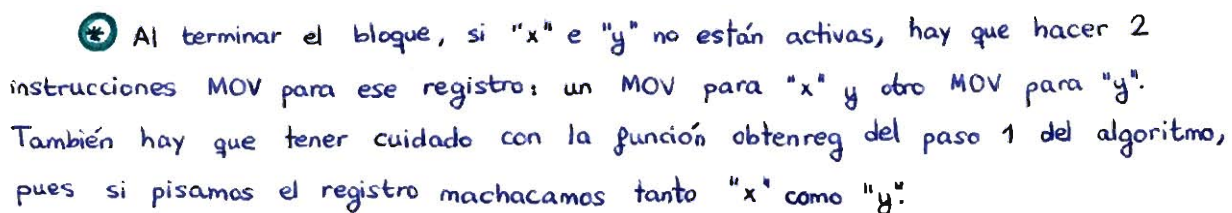 * Al terminar el bloque, si "x" e "y" no están activas, hay que hacer 2
instrucciones MOV para ese registro: un MOV para "x" y otro MOV para "y".
También hay que tener cuidado con la función obtenreg del paso 1 del algoritmo,
pues si pisamos el registro machacamos tanto "x" como "y".